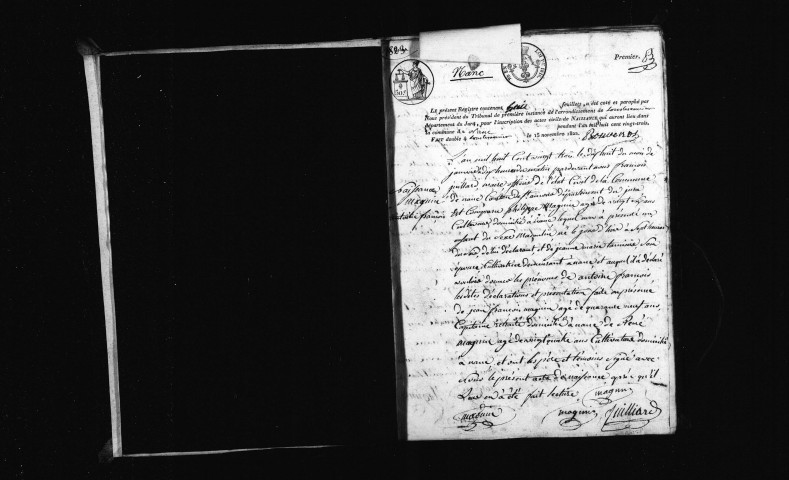 Premier.
Nanc
Le présent Registre contenant seize feuillets, a été coté et paraphé par
Nous président du Tribunal de première instance de l'arrondissement de
département du Jura, pour l'inscription des actes civils de NAISSANCE qui auront lieu dans
la commune de Nanc pendant l'an mil huit cent vingt-trois.
Fait double à le 15 novembre 1822.
L'an mil huit cent vingt trois le dix huit du mois de
janvier à dix heures du matin pardevant nous françois
juillard maire officier de l'état Civil de la Commune
de nanc Canton de St amour département du jura
Est Comparu philippe Maguin agé de vingt ans
Cultivateur domicilié à nanc lequel nous a présenté un
enfant du Sexe Masculin né le jour d'hier à sept heures
du soir, de lui déclarant et de jeanne marie Son
épouse Cultivatrice demeurant à nanc et auquel il a déclaré
vouloir donner les prénoms de antoine françois
lesdites déclarations et présentation faite en présence
de jean françois maguin agé de quarante neuf ans,
Capitaine retraité domicilié à nanc de René
maguin agé de vingt quatre ans Cultivateur domicilié
à nanc et ont les père et témoins signé avec
nous le présent acte de naissance après qu'il
leur en a été fait lecture. maguin
maguin maguin Juilliard
naissance
maguin
antoine françois